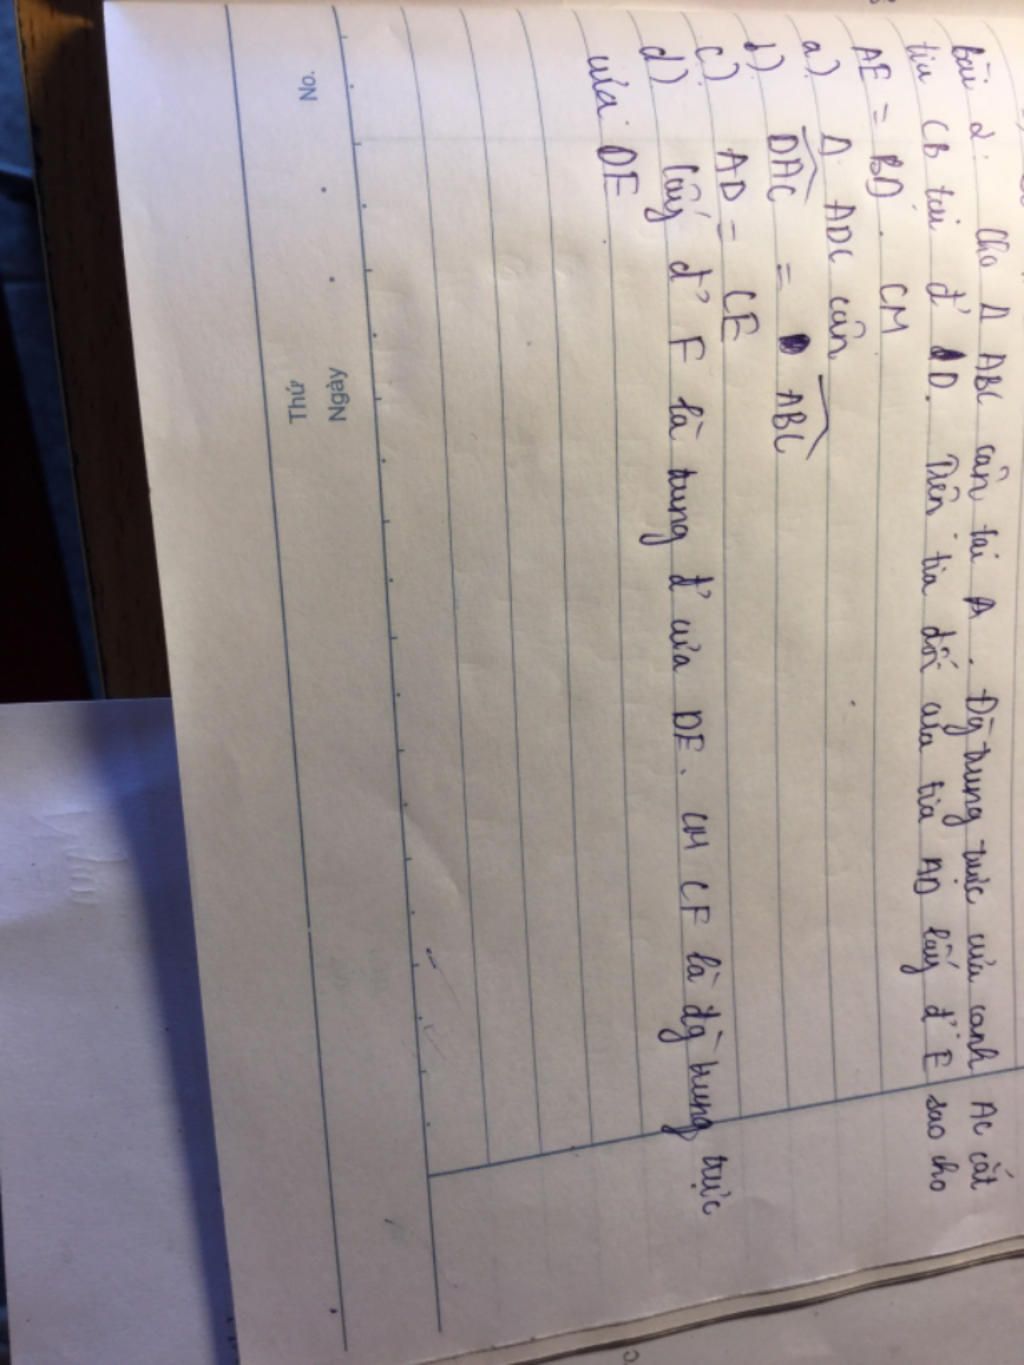 Bài 2. Cho Δ ABC cân tại A. Đg trung trực của cạnh AC cắt
tia CB tại đ' D. Trên tia đối của tia AD lấy đ' E sao cho
AE = BD. CM
a) Δ ADC cân
b) DAC = ABC
c) AD = CE
d) lấy đ' F là trung đ' của DE. CM CF là đg trung trực
của DE
No.
Thứ
Ngày